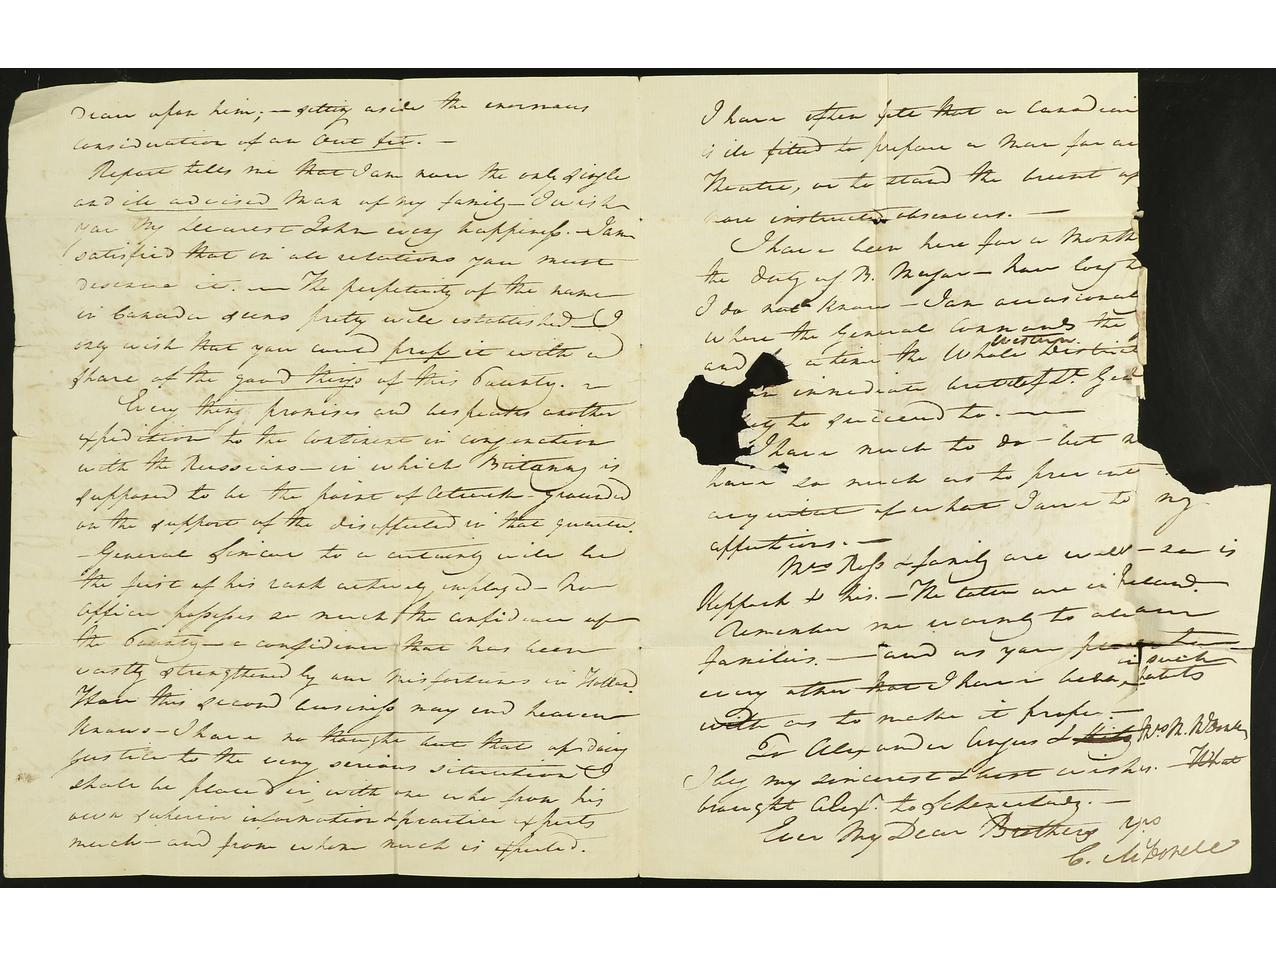 Dear upon him; – setting aside the enormous
consideration of an Out fit. –
Report tells me that I am now the only single
and ill advised Man of my family – I wish
you My dearest John every happiness. – I am
satisfied that in all relations you must
deserve it. – The perpetuity of the name
in Canada seems pretty well established – I
only wish that you could prop it with a
share of the good things of this Country. –
Every thing promises and bespeaks another
expedition to the continent in conjunction
with the Russians – in which Britanny is
supposed to be the point of Attack – grounded
on the support of the disaffected in that quarter.
– General Simcoe to a certainty will be
the first of his rank actively employed – No
officer possesses so much the confidence of
the Country – a confidence that has been
vastly strengthened by our misfortunes in Holland.
How this second business may end heaven
knows – I have no thought but that of doing
justice to the very serious situation I
shall be placed in, with one who from his
own superior information & practice expects
much – and from whom much is expected.
I have often felt that a Canadian
is ill fitted to prepare a Man for a
Theatre, or to stand the brunt of
more instructed observers. –
I have been here for a Month
the duty of B. Major – how long
I do not know – I am occasional
where the General Commands the
and a time the Whole Western District
immediate
to succeed to. –
I have much to do – but n
have so much as to prevent
of what I owe to my
affections. –
Mrs Ross & family are well – so is
Keppoch & his. – The latter are in Ireland.
Remember me warmly to all our
families. – and as you
every other that I have been in such habits
with as to make it proper –
To Alexander Angus & Mrs M.
I beg my sincerest & best wishes. – What
brought Alexr. to Schenectady. –
Ever My Dear Brothers yrs
C. McDonell